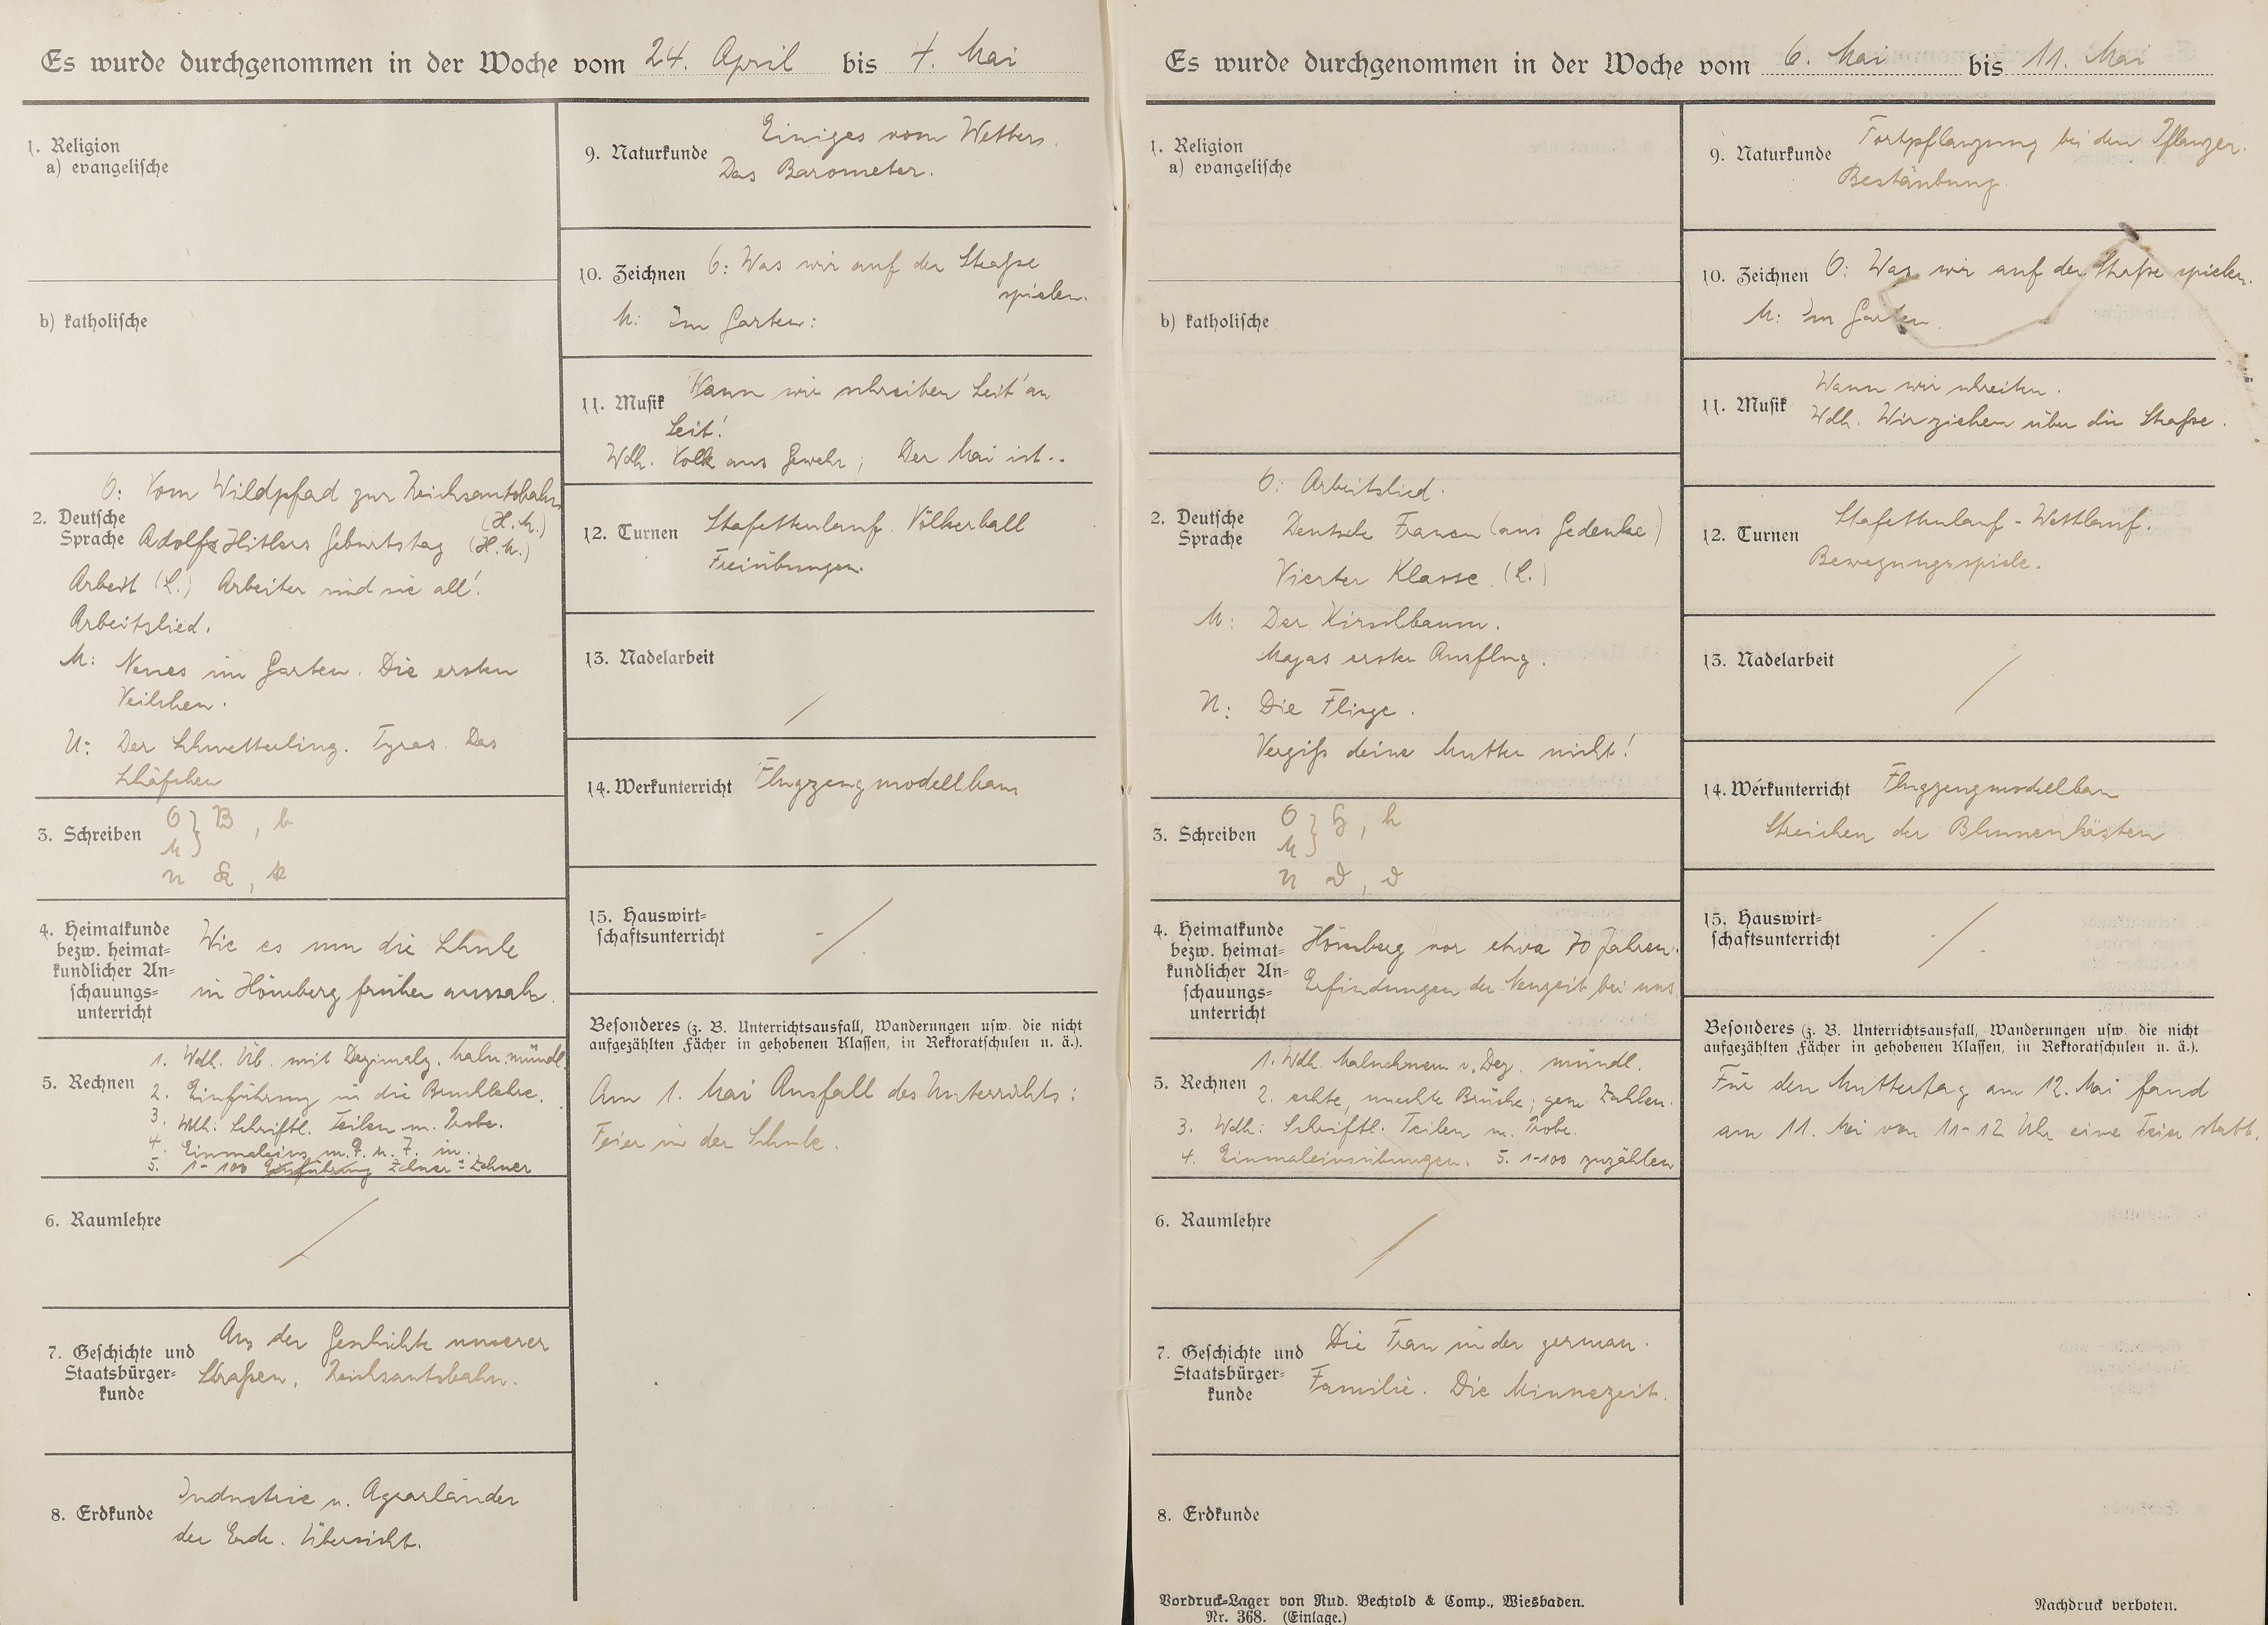 Es wurde durchgenommen in der Woche vom 24. April bis 4. Mai
1. Religion
a) evangelische
b) katholische
O: Vom Wildpfad zur Reichsautobahn
(H. M.)
2. Deutsche
Sprache
Adolf Hitlers Geburtstag (H. M.)
Arbeit (L.) Arbeiter sind sie all'.
Arbeitslied.
M: Neues im Garten. Die ersten
Veilchen.
U: Der Schmetterling. Tyras. Das
Schäfchen
3. Schreiben
O
M } B, b
U
4. Heimatkunde
bezw. heimat-
kundlicher An-
schauungs-
unterricht
Wie es um die Schule
in Hömberg früher aussah.
5. Rechnen
1. Wdh. Üb. mit Dezimalz. maln. mündl.
2. Einführung in die Bruchlehre.
3. Wdh: Schriftl. Teilen m. Probe.
4. Einmaleins m. 9 u. 7. in.
5. 1-100 Einführung Zehner = Zehner
6. Raumlehre
/
7. Geschichte und
Staatsbürger-
kunde
Aus der Geschichte unserer
Straßen. Reichsautobahn.
8. Erdkunde
Industrie u. Agrarländer
der Erde. Übersicht.
9. Naturkunde
Einiges vom Wetters.
Das Barometer.
10. Zeichnen
O: Was wir auf der Straße
spielen.
M: Im Garten:
11. Musik
Wann wir schreiten Seit' an
Seit'.
Wdh. Volk ans Gewehr; Der Mai ist..
12. Turnen
Stafettenlauf. Völkerball
Freiübungen.
13. Nadelarbeit
/
14. Werkunterricht
Flugzeugmodellbau
15. Hauswirt-
schaftsunterricht
/
Besonderes (z. B. Unterrichtsausfall, Wanderungen usw. die nicht
aufgezählten Fächer in gehobenen Klassen, in Rektoratschulen u. ä.).
Am 1. Mai Ausfall des Unterrichts:
Feier in der Schule.
Es wurde durchgenommen in der Woche vom 6. Mai bis 11. Mai
1. Religion
a) evangelische
b) katholische
2. Deutsche
Sprache
O: Arbeitslied.
Deutsche Frauen (aus Gedenke)
Vierter Klasse. (L.)
M: Der Kirschbaum.
Majas erster Ausflug.
U: Die Fliege.
Vergiß deine Mutter nicht!
3. Schreiben
O
M } H, h
U
4. Heimatkunde
bezw. heimat-
kundlicher An-
schauungs-
unterricht
Hömberg vor etwa 70 Jahren.
Erfindungen der Neuzeit bei uns
5. Rechnen
1. Wdh. Malnehmen v. Dez. mündl.
2. echte, unechte Brüche; gem. Zahlen.
3. Wdh: Schriftl. Teilen m. Probe.
4. Einmaleinsübungen. 5. 1-100 zuzählen
6. Raumlehre
/
7. Geschichte und
Staatsbürger-
kunde
Die Frau in der german.
Familie. Die Minnezeit.
8. Erdkunde
Vordruck-Lager von Rud. Bechtold & Comp., Wiesbaden.
Nr. 368. (Einlage.)
9. Naturkunde
Fortpflanzung bei den Pflanzen.
Bestäubung.
10. Zeichnen
O: Was wir auf der Straße spielen.
M: Im Garten.
11. Musik
Wann wir schreiten.
Wdh. Wir ziehen über die Straße.
12. Turnen
Stafettenlauf - Wettlauf.
Bewegungsspiele.
13. Nadelarbeit
/
14. Werkunterricht
Flugzeugmodellbau
Streichen der Blumenkästen
15. Hauswirt-
schaftsunterricht
/
Besonderes (z. B. Unterrichtsausfall, Wanderungen usw. die nicht
aufgezählten Fächer in gehobenen Klassen, in Rektoratschulen u. ä.).
Für den Muttertag am 12. Mai fand
am 11. Mai von 11-12 Uhr eine Feier statt.
Nachdruck verboten.